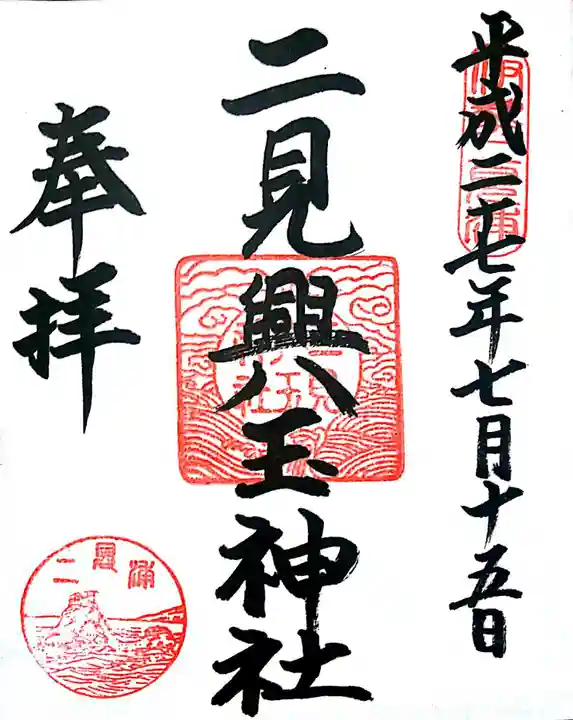 平成二十七年七月十五日
二見興玉神社
奉拝
二見
興玉
神社
二見浦